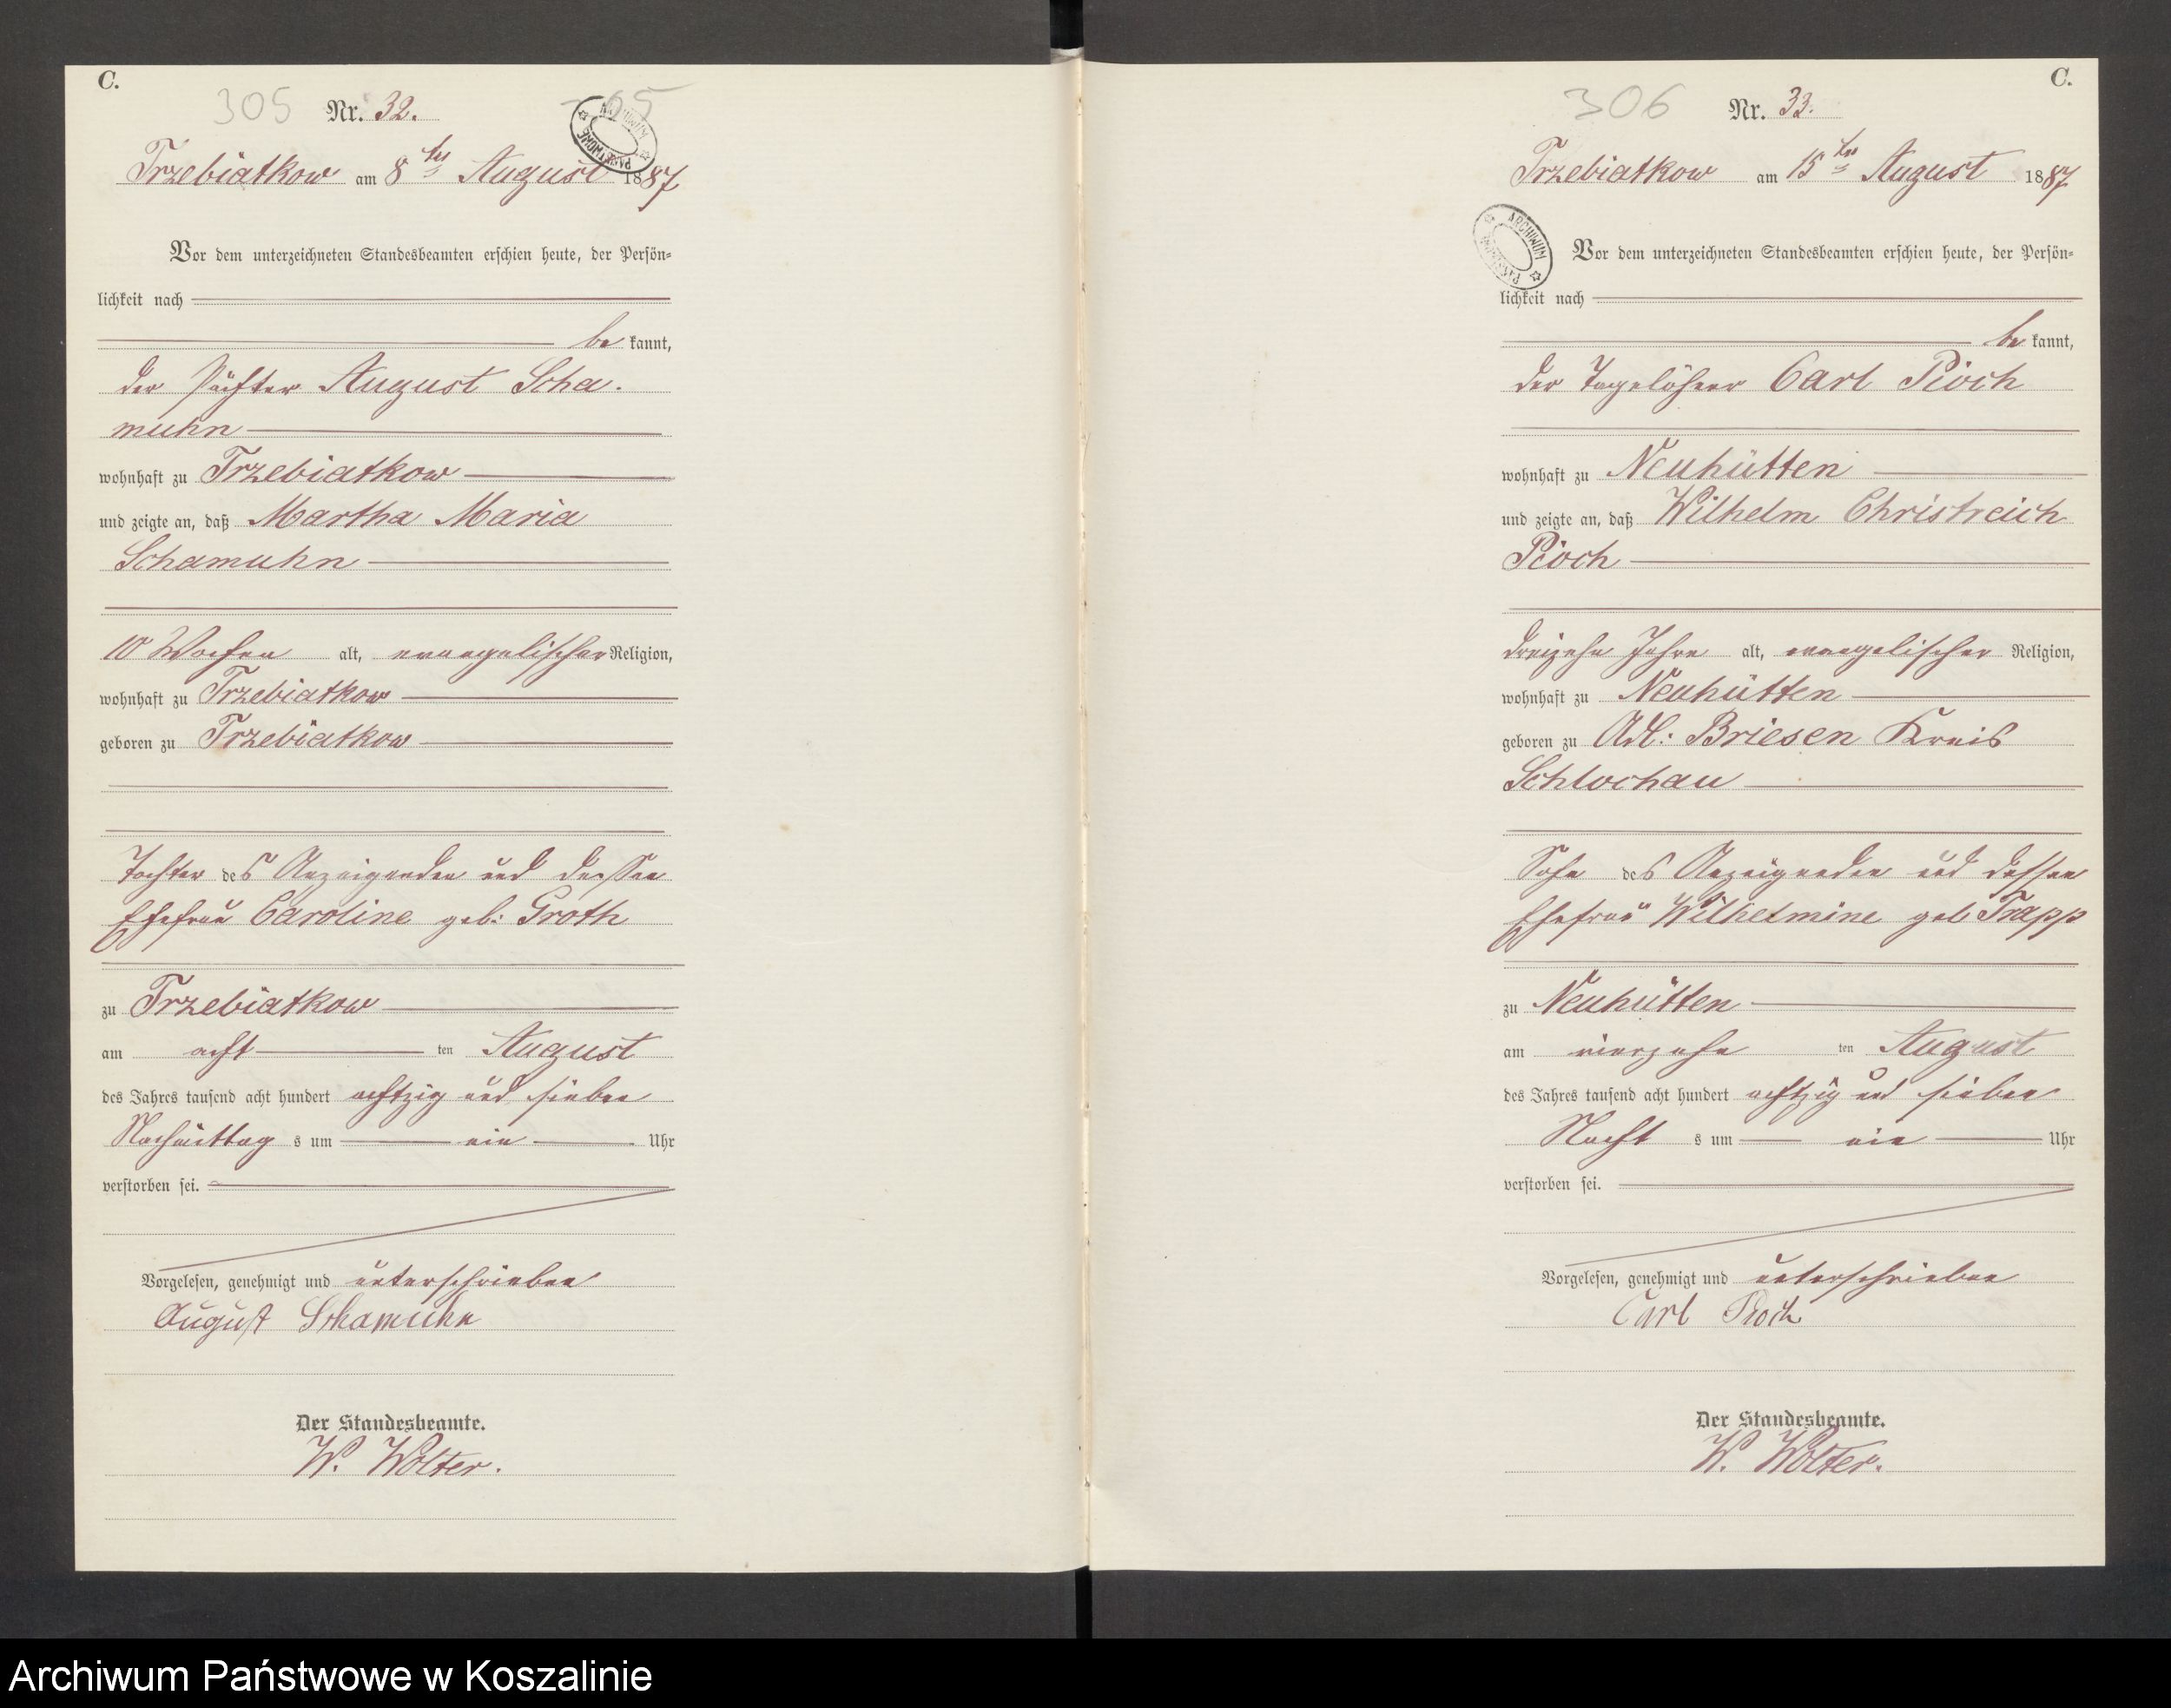 C.
305 Nr. 32.
Trzebiatkow am 8ten August 1887
Vor dem unterzeichneten Standesbeamten erschien heute, der Persön-
lichkeit nach
be kannt,
der Pächter August Scha-
muhn
wohnhaft zu Trzebiatkow
und zeigte an, daß Martha Maria
Schamuhn
10 Wochen alt, evangelischer Religion,
wohnhaft zu Trzebiatkow
geboren zu Trzebiatkow
Tochter des Anzeigenden und dessen
Ehefrau Caroline geb: Groth
zu Trzebiatkow
am acht ten August
des Jahres tausend acht hundert achtzig und sieben
Nachmittag s um ein Uhr
verstorben sei.
Vorgelesen, genehmigt und unterschrieben
August Schamuhn
Der Standesbeamte.
W. Wolter.
C.
306 Nr. 33.
Trzebiatkow am 15ten August 1887
ARCHIWUM
Vor dem unterzeichneten Standesbeamten erschien heute, der Persön-
lichkeit nach
be kannt,
der Tagelöhner Carl Pioch
wohnhaft zu Neuhütten
und zeigte an, daß Wilhelm Christreich
Pioch
dreizehn Jahre alt, evangelischer Religion,
wohnhaft zu Neuhütten
geboren zu Adl: Briesen Kreis
Schlochau
Sohn des Anzeigenden und dessen
Ehefrau Wilhelmine geb Trapp
zu Neuhütten
am vierzehn ten August
des Jahres tausend acht hundert achtzig und sieben
Nacht s um ein Uhr
verstorben sei.
Vorgelesen, genehmigt und unterschrieben
Carl Pioch
Der Standesbeamte.
W. Wolter.
Archiwum Państwowe w Koszalinie